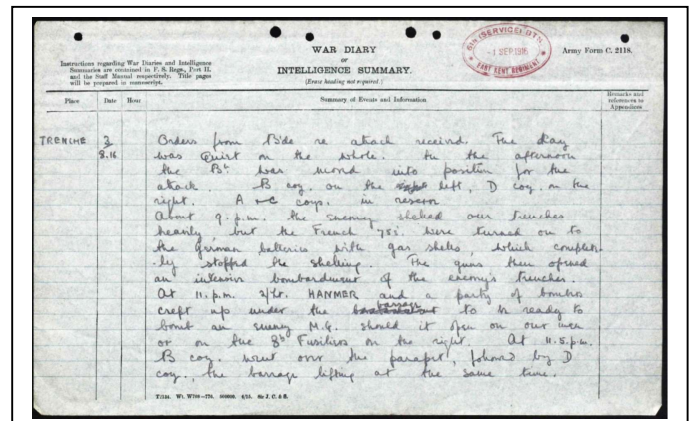 WAR DIARY
or
INTELLIGENCE SUMMARY.
(Erase heading not required.)
Instructions regarding War Diaries and Intelligence
Summaries are contained in F. S. Regs., Part II.
and the Staff Manual respectively. Title pages
will be prepared in manuscript.
6TH (SERVICE) BTN
-1 SEP 1916
EAST KENT REGIMENT
Army Form C. 2118.
Place Date Hour Summary of Events and Information Remarks and references to Appendices
TRENCHES 3/8.16 Orders from B'de re attack received. The day
was Quiet on the whole. In the afternoon
the Bt. was moved into position for the
attack. B coy. on the left, D coy. on the
right. A & C coys. in reserve
About 9.p.m. the enemy shelled our trenches
heavily, but the French 75s. were turned on to
the German batteries with gas shells, which complet-
-ly stopped the shelling. The guns then opened
an intensive bombardment of the enemy's trenches.
At 11.p.m. 2/Lt. HANMER and a party of bombers
crept up under the barrage to be ready to
bomb an enemy M.G. should it open on our men
or on the 8th Fusiliers on the right. At 11.5.p.m.
B coy. went over the parapet, followed by D
coy., the barrage lifting at the same time.